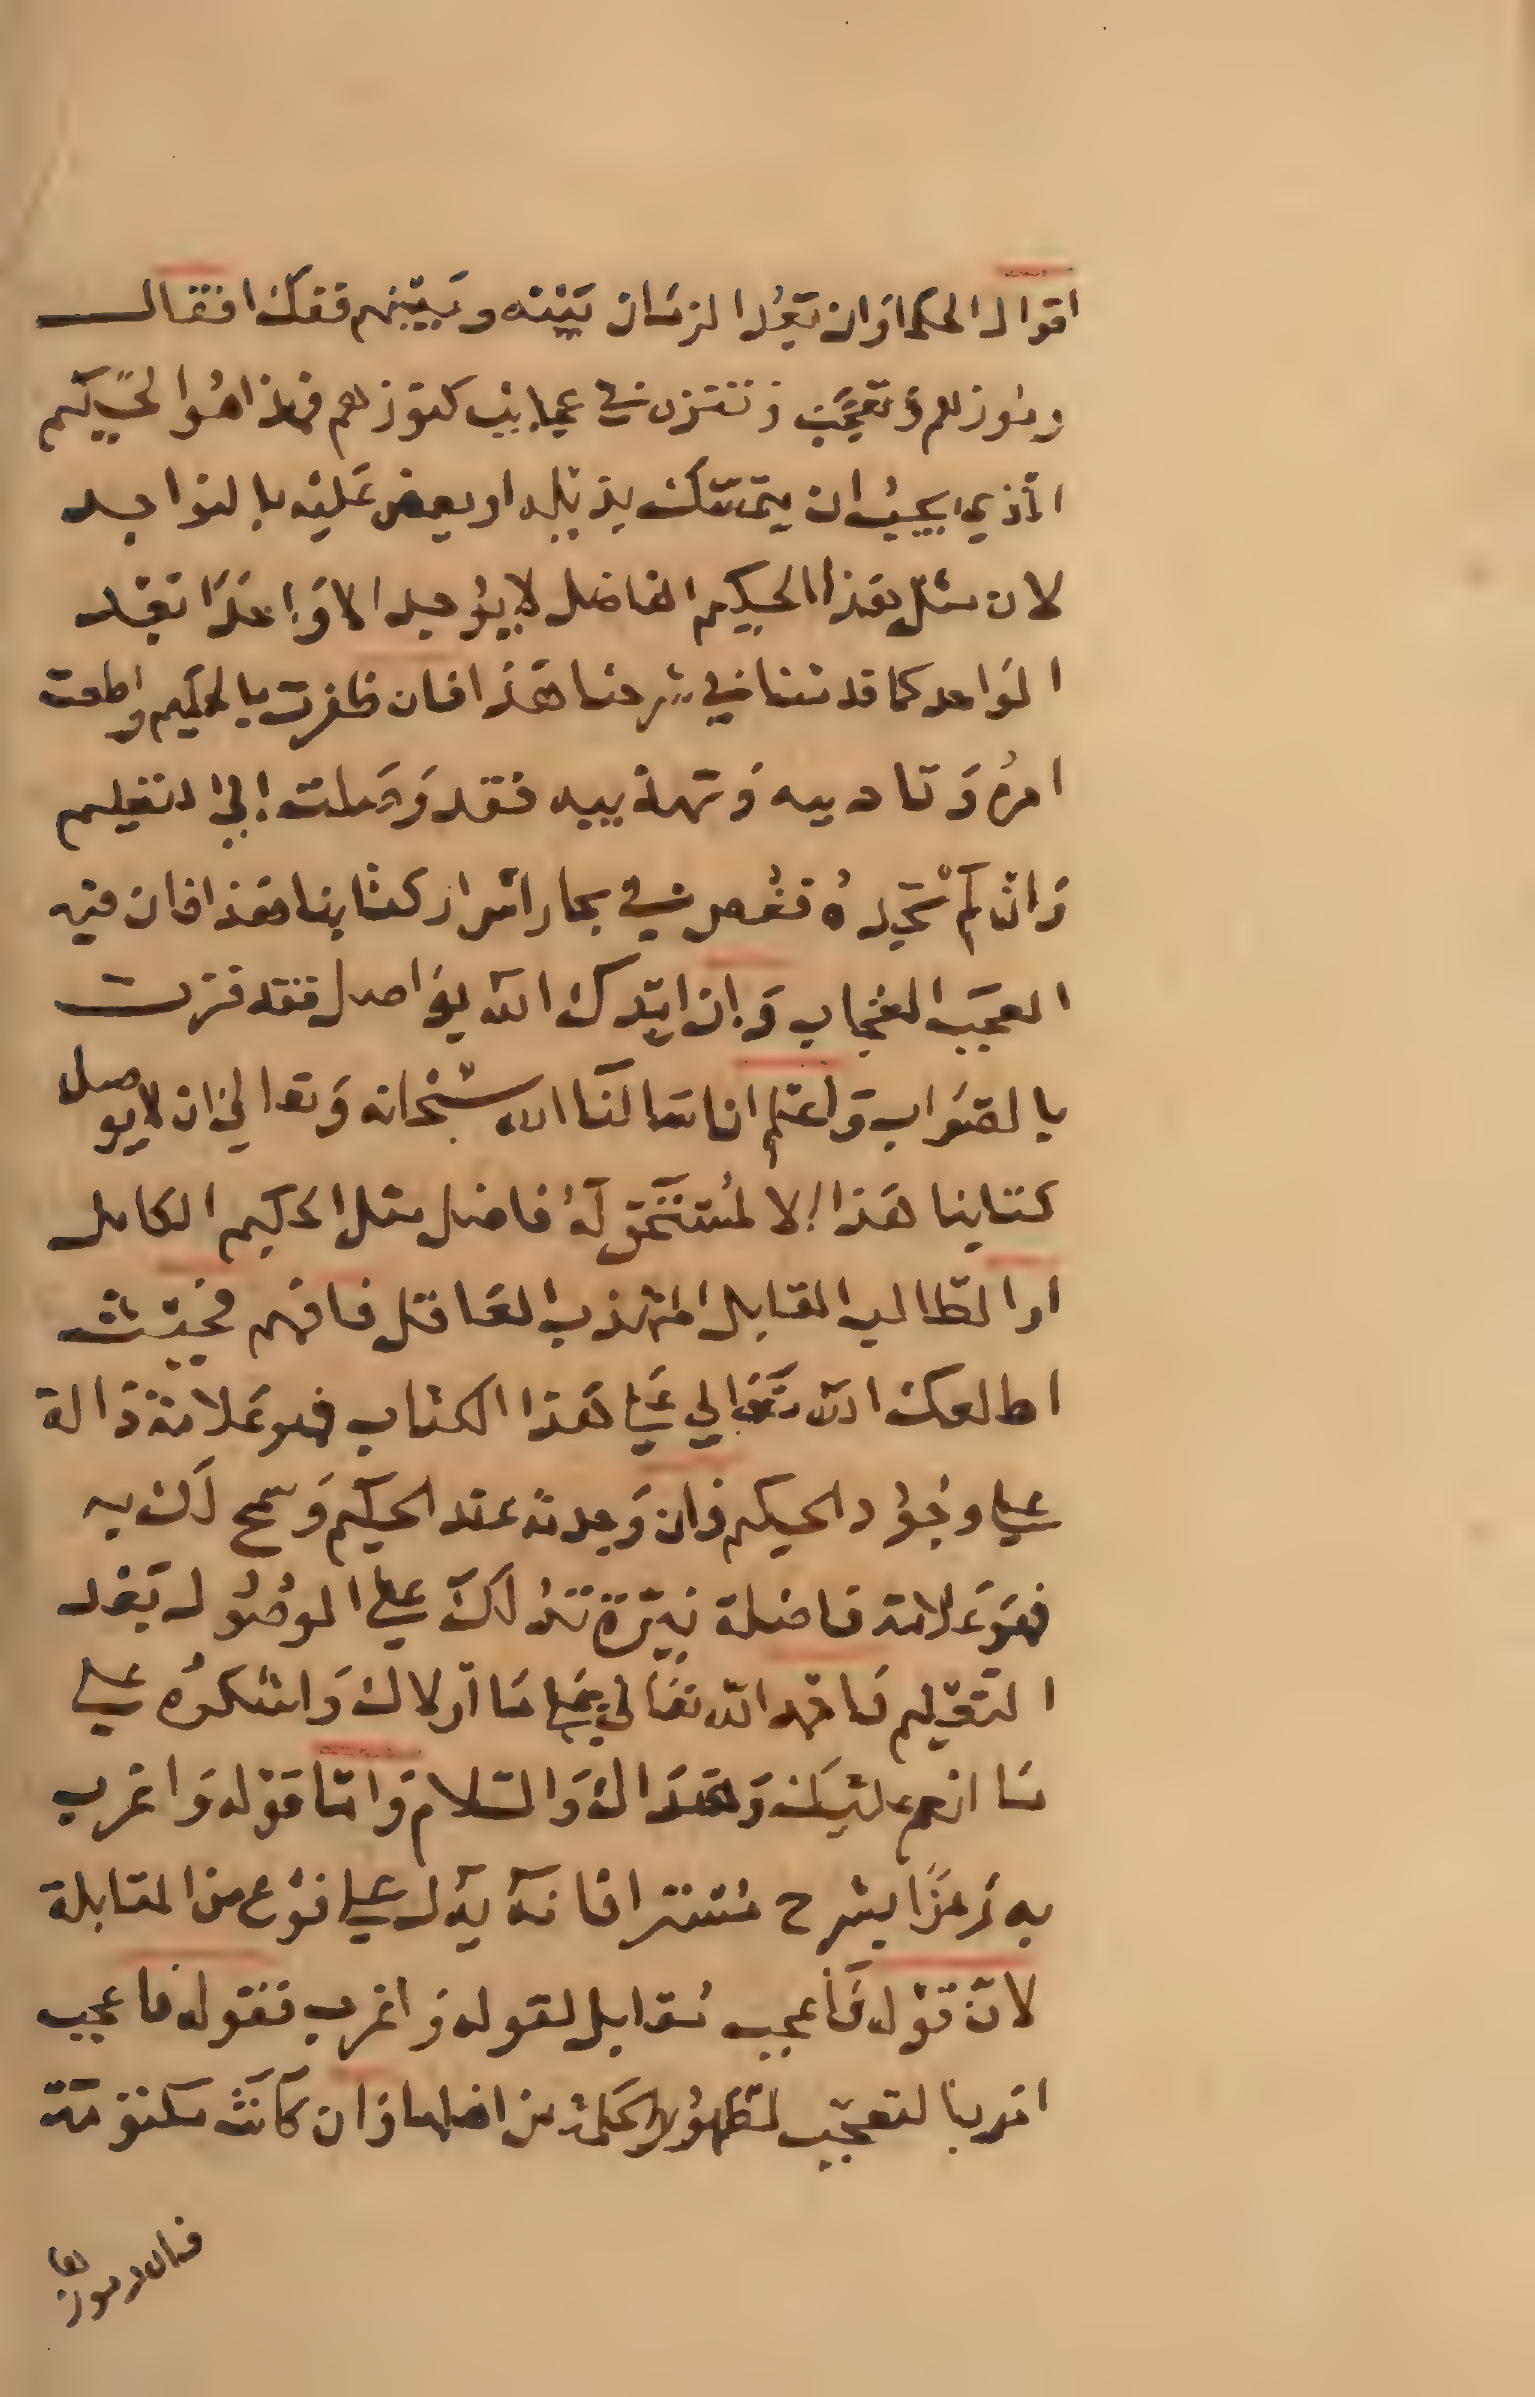 اقوال الحكما وان بعد الزمان بينه وبينهم ففك اقفال
رموزهم وتعجب وتنزه في عجايب كنوزهم فهذا هو الحكيم
الذي يجب ان يتمسك بذيله او يعض عليه بالنواجد
لان مثل هذا الحكيم الفاضل لا يوجد الا واحدا بعد
الواحد كما قدمنا في شرحنا هذا فان ظفرت بالحكيم واطعت
امره وتاديبه وتهذيبه فقد وصلت الي التعليم
وان لم تجده فغص في بحار اسرار كتابنا هذا فان فيه
العجب العجاب وان ايدك الله بواصل فقد فزت
بالصواب واعلم انا سالنا الله سبحانه وتعالي ان لا يوصل
كتابنا هذا الا لمستحق له فاضل مثل الحكيم الكامل
او الطالب القابل المهذب العاقل فافهم فحيث
اطلعك الله تعالي علي هذا الكتاب فهو علامة دالة
علي وجود الحكيم وان وجدته عند الحكيم وسمح لك به
فهو علامة فاضلة نيرة تدلك علي الوصول بعد
التعليم فاحمد الله تعالي علي ما اولاك واشكره علي
ما انعم عليك وهداك والسلام واما قوله واغرب
به رمزا بشرح مستتر فانه يدل علي نوع من المقابلة
لان قوله فاعجب مقابل لقوله واغرب فقوله فاعجب
امر بالتعجب لظهور الحكمة من اهلها وان كانت مكتومة
فان رموزها